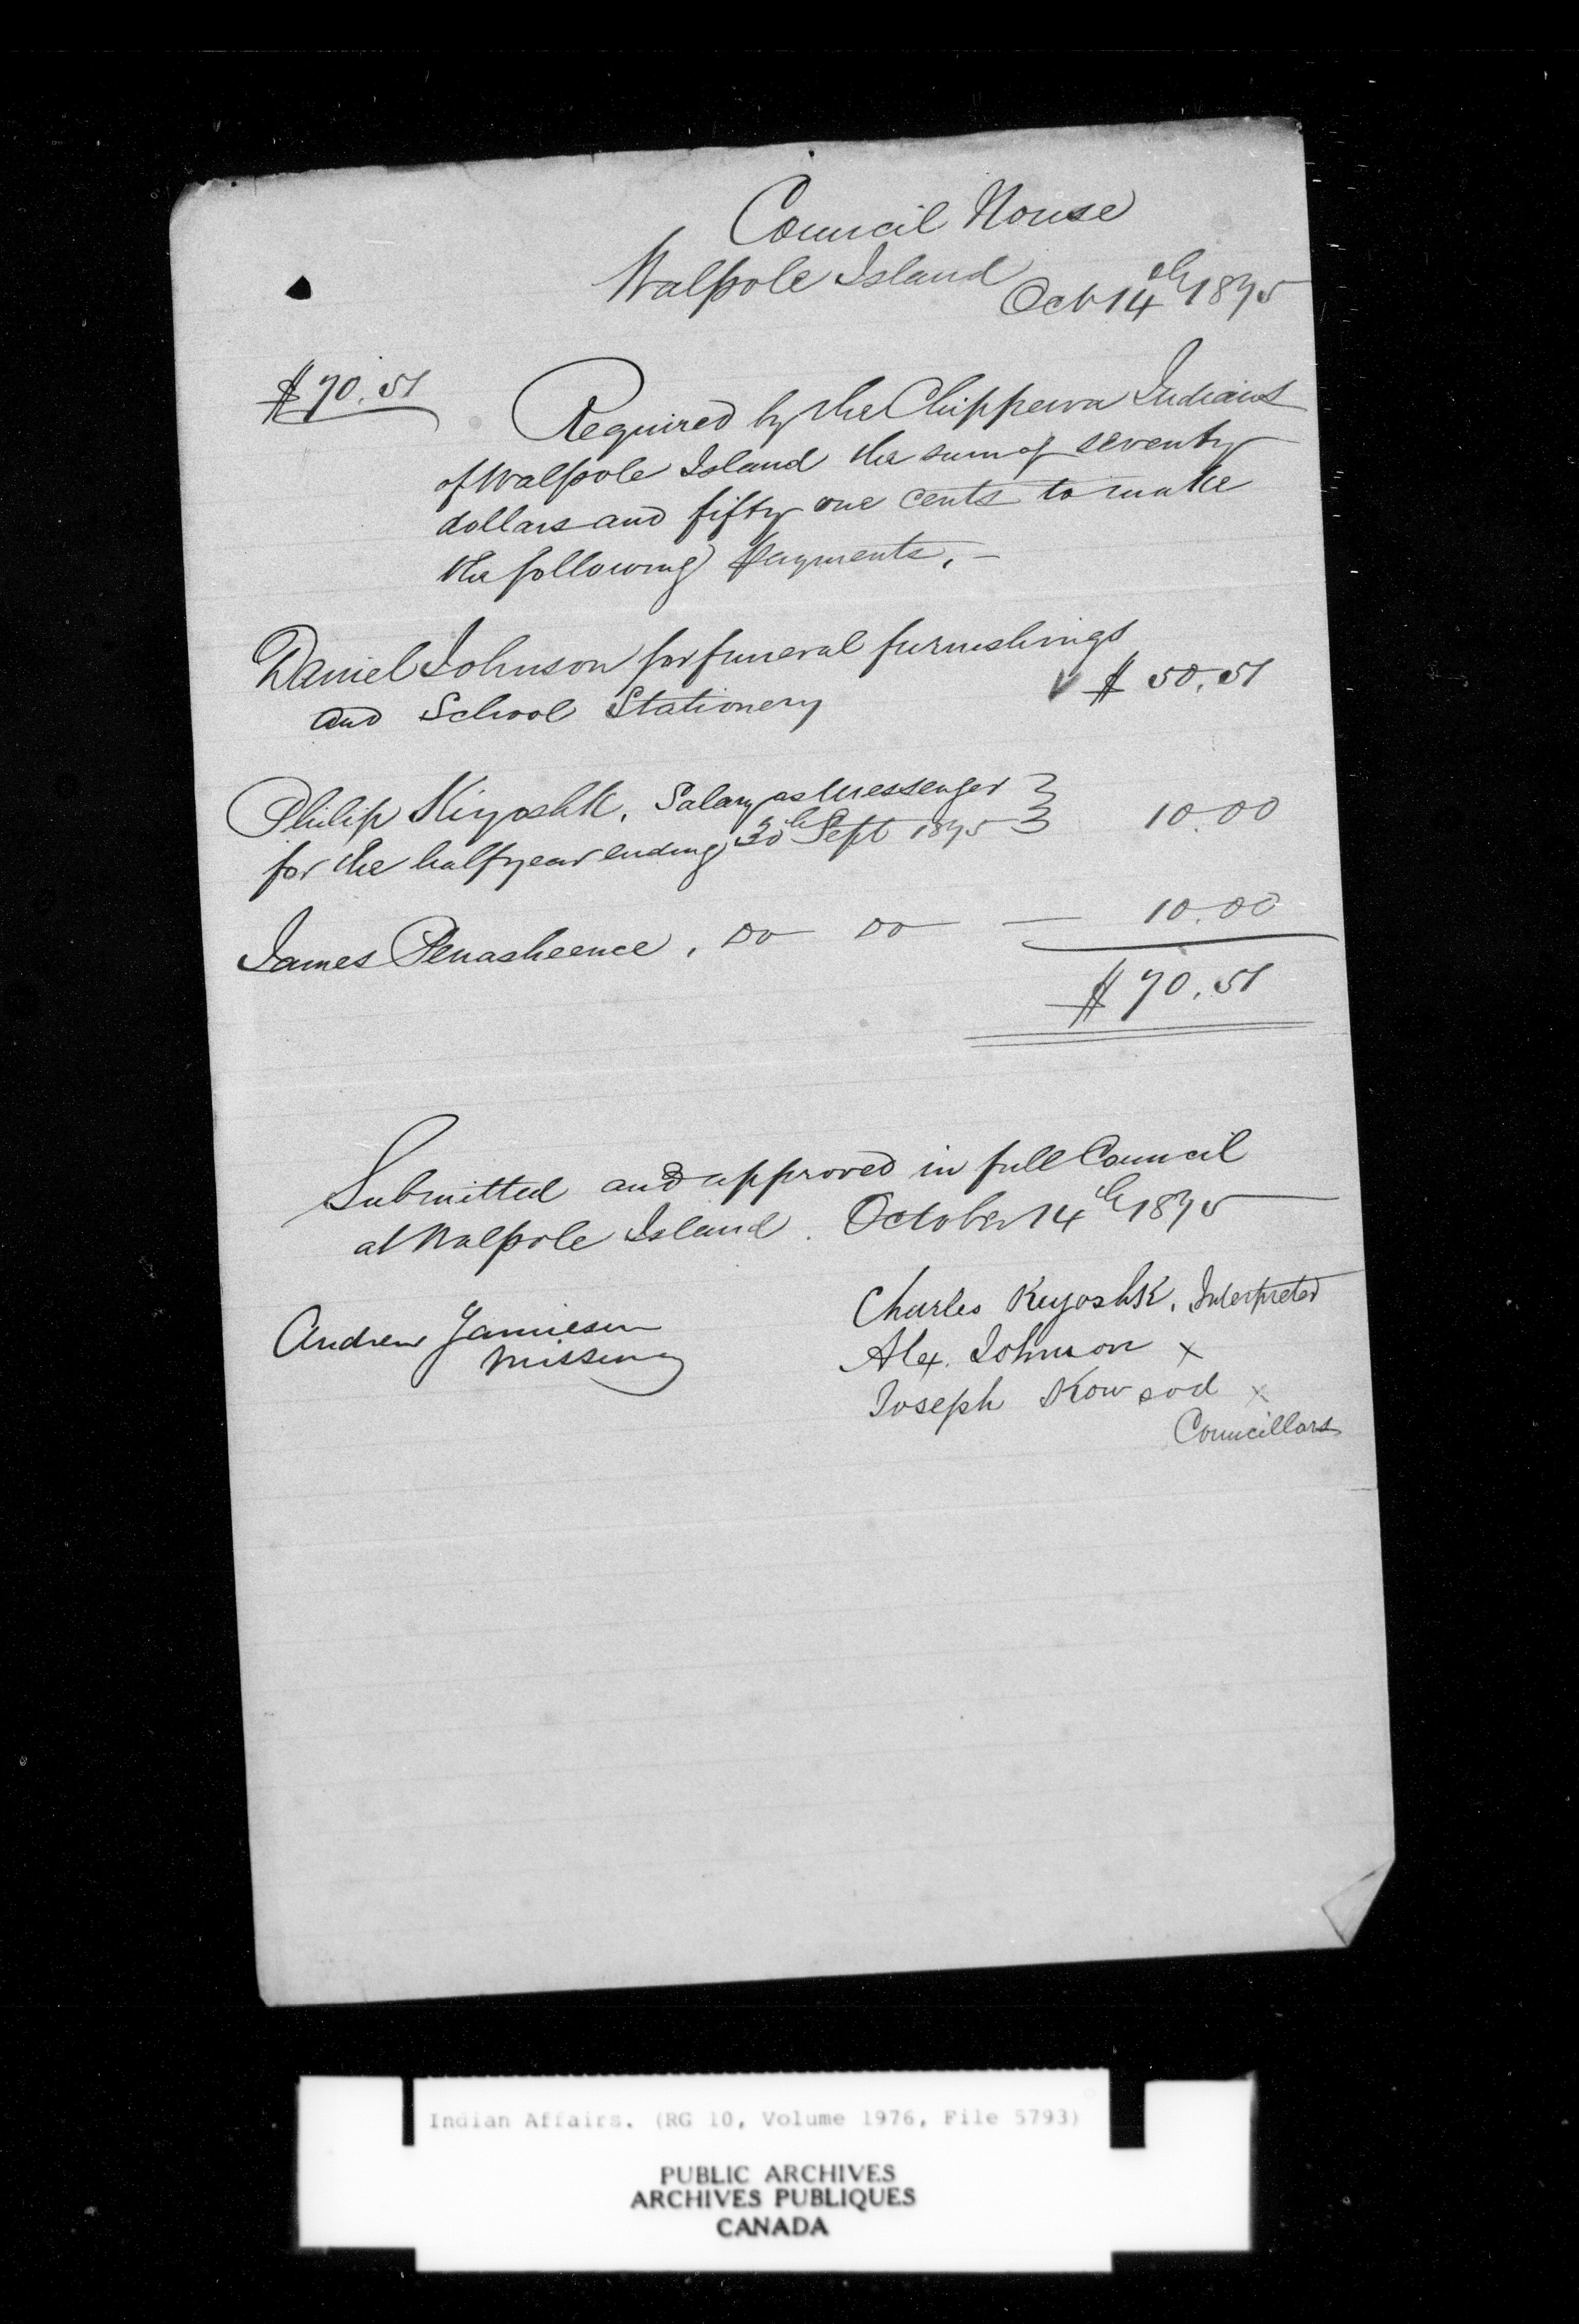 Council House
Walpole Island
Oct 14th 1875
$70.51
Required by the Chippewa Indians
of Walpole Island the sum of seventy
dollars and fifty one cents to make
the following payments. —
Daniel Johnson for funeral furnishings
and School Stationery $ 50.51
Philip Kiyoshk, Salary as Messenger
for the half year ending 30th Sept 1875 10.00
James Penasheence, Do Do — 10.00
$ 70.51
Submitted and approved in full Council
at Walpole Island. October 14th 1875
Andrew Jamieson
Missiny
Charles Keyoshk, Interpreter
Alex. Johnson x
Joseph Kowsod x
Councillors
Indian Affairs. (RG 10, Volume 1976, File 5793)
PUBLIC ARCHIVES
ARCHIVES PUBLIQUES
CANADA